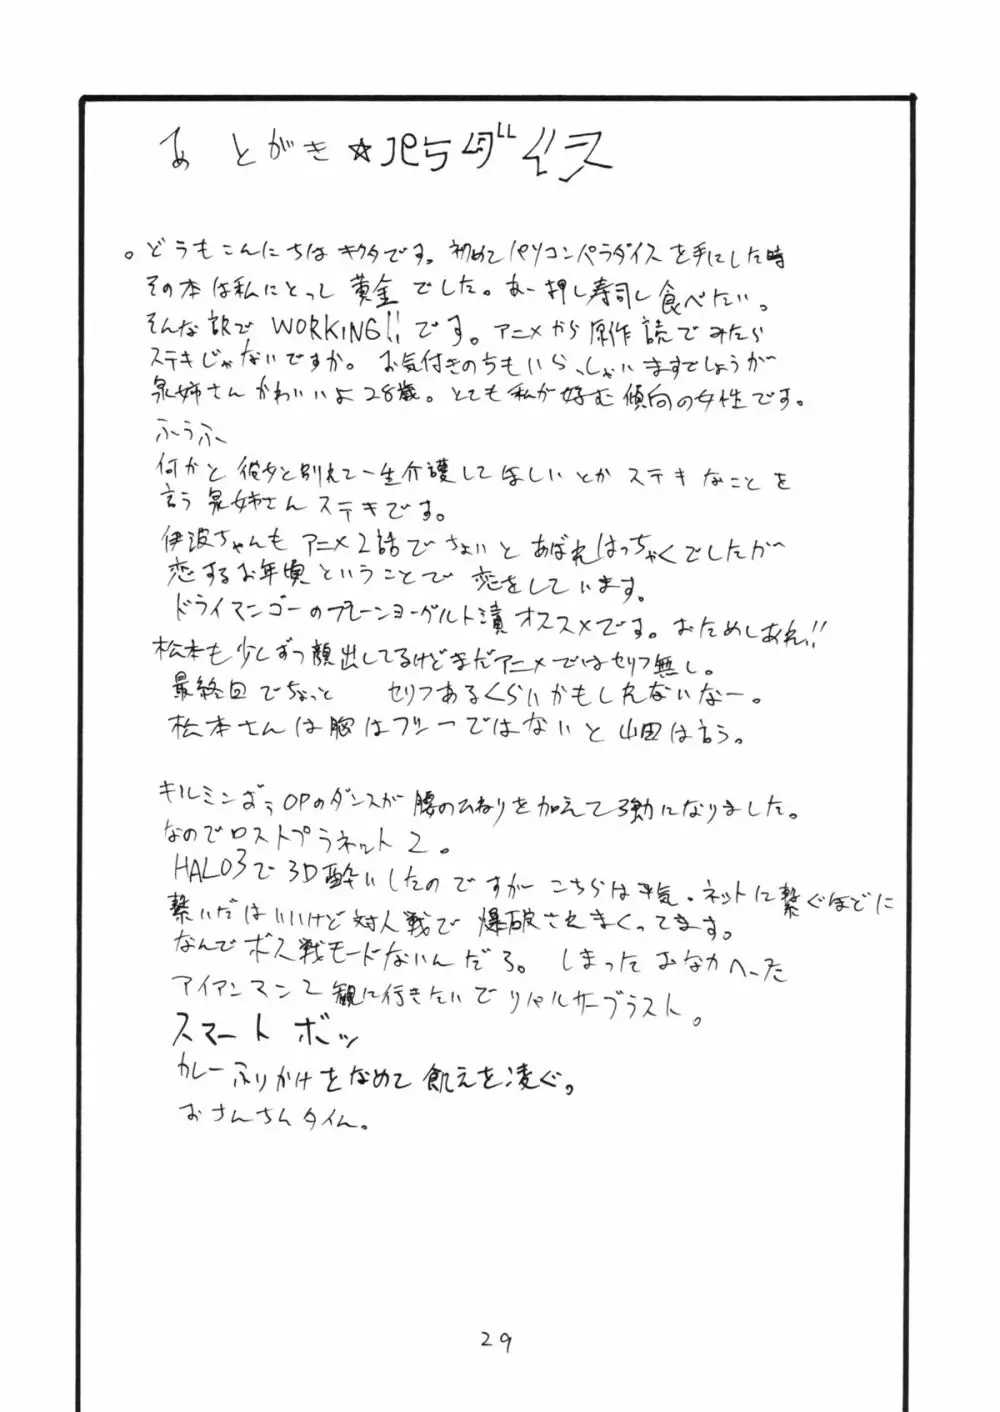 あとがき☆パラダイス
。どうもこんにちはキクタです。初めてパソコンパラダイスを手にした時
その本は私にとって黄金でした。あー押し寿司し食べたい。
そんな訳でWORKING!!です。アニメから原作読んでみたら
ステキじゃないですか。お気付きのちもいらっしゃいますでしょうが
泉姉さんかわいいよ28歳。とても私が好む傾向の女性です。
ふぅふ
何かと彼女と別れて一生介護してほしいとかステキなことを
言う泉姉さんステキです。
伊波ちゃんもアニメ2話でちょいとあばれはっちゃくでしたが
恋するお年頃ということで恋をしています。
ドライマンゴーのプレーンヨーグルト漬オススメです。おためしあれ!!
松本も少しずつ顔出ししてるけどまだアニメではセリフ無し。
最終回でちょっと セリフあるくらいかもしれないなー。
松本さんは胸はフツーではないと山田は言う。
キルミンずぅOPのダンスが腰のひねりを加えて強力になりました。
なのでロストプラネット2。
HALO3で3D酔いしたのですがこちらは平気。ネットに繋ぐほどに
繋いだはいいけど対人戦で爆破されまくってます。
なんでボス戦モードないんだろ。しまったおなかへった
アイアンマン2観に行きたいでリパルサーブラスト。
スマートボッ
カレーふりかけをなめて飢えを凌ぐ。
おさんちんタイム。
29